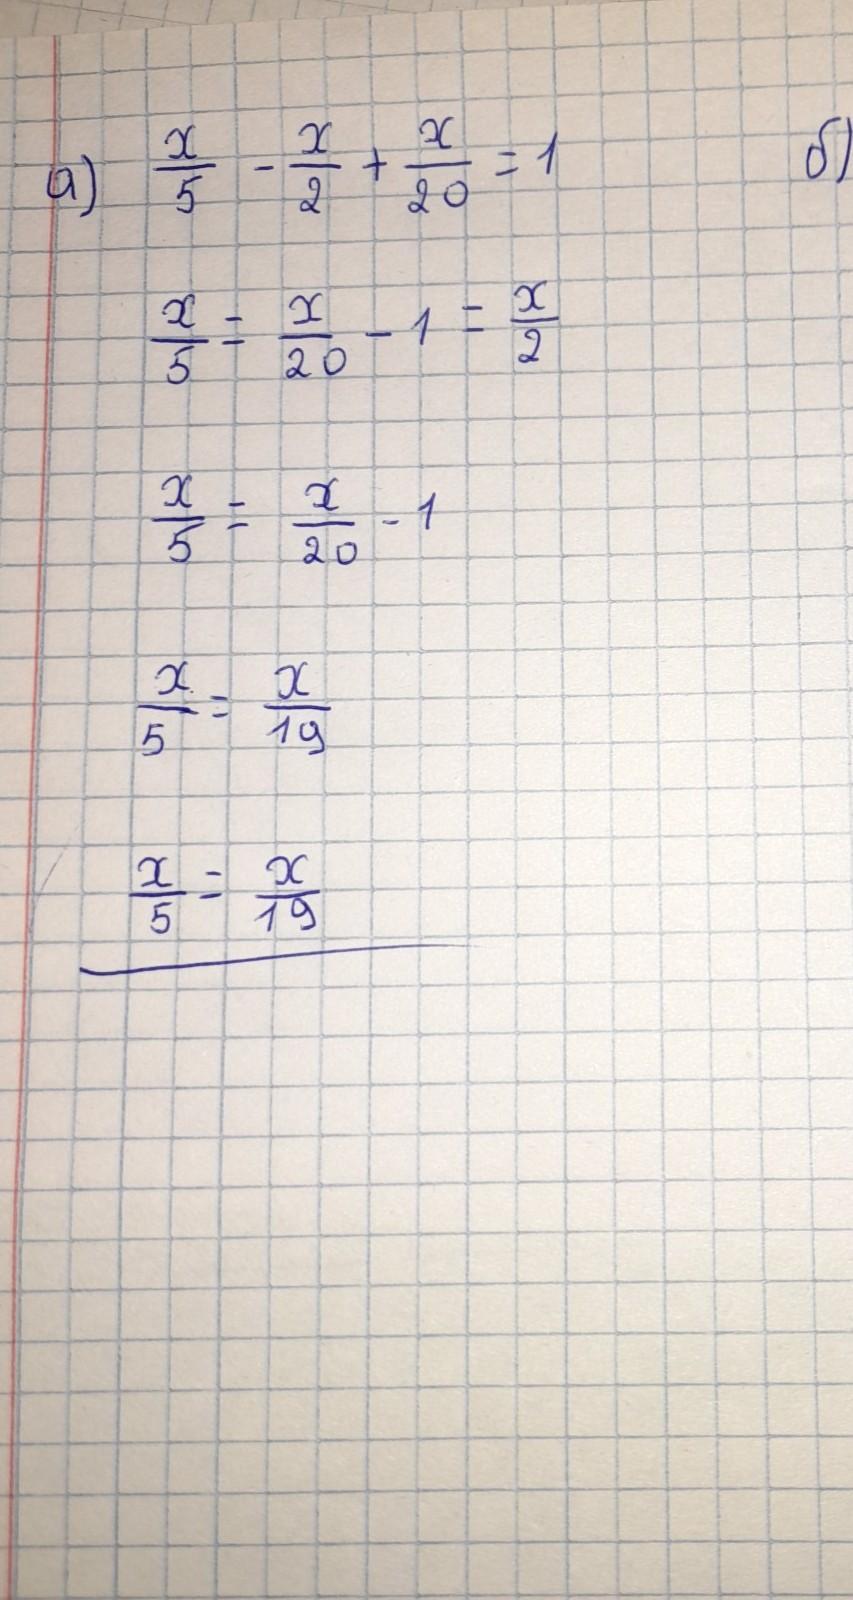 а) x/5 - x/2 + x/20 = 1 б)
x/5 = x/20 - 1 = x/2
x/5 = x/20 - 1
x/5 = x/19
x/5 = x/19